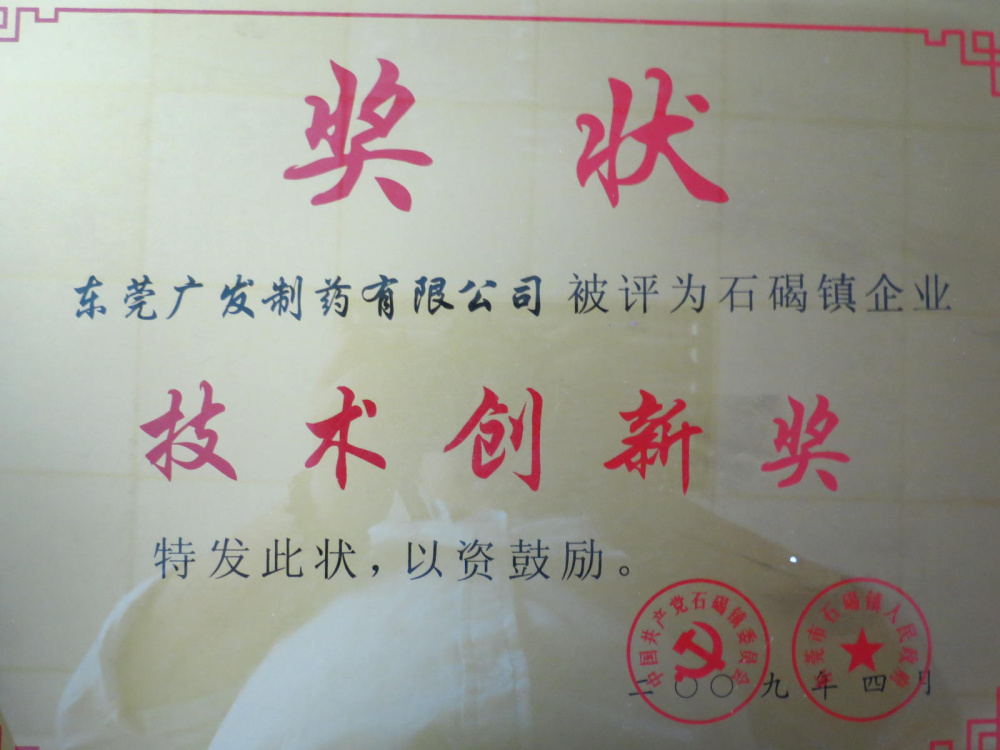 奖状
东莞广发制药有限公司被评为石碣镇企业
技术创新奖
特发此状，以资鼓励。
中国共产党石碣镇委员会
东莞市石碣镇人民政府
二〇〇九年四月